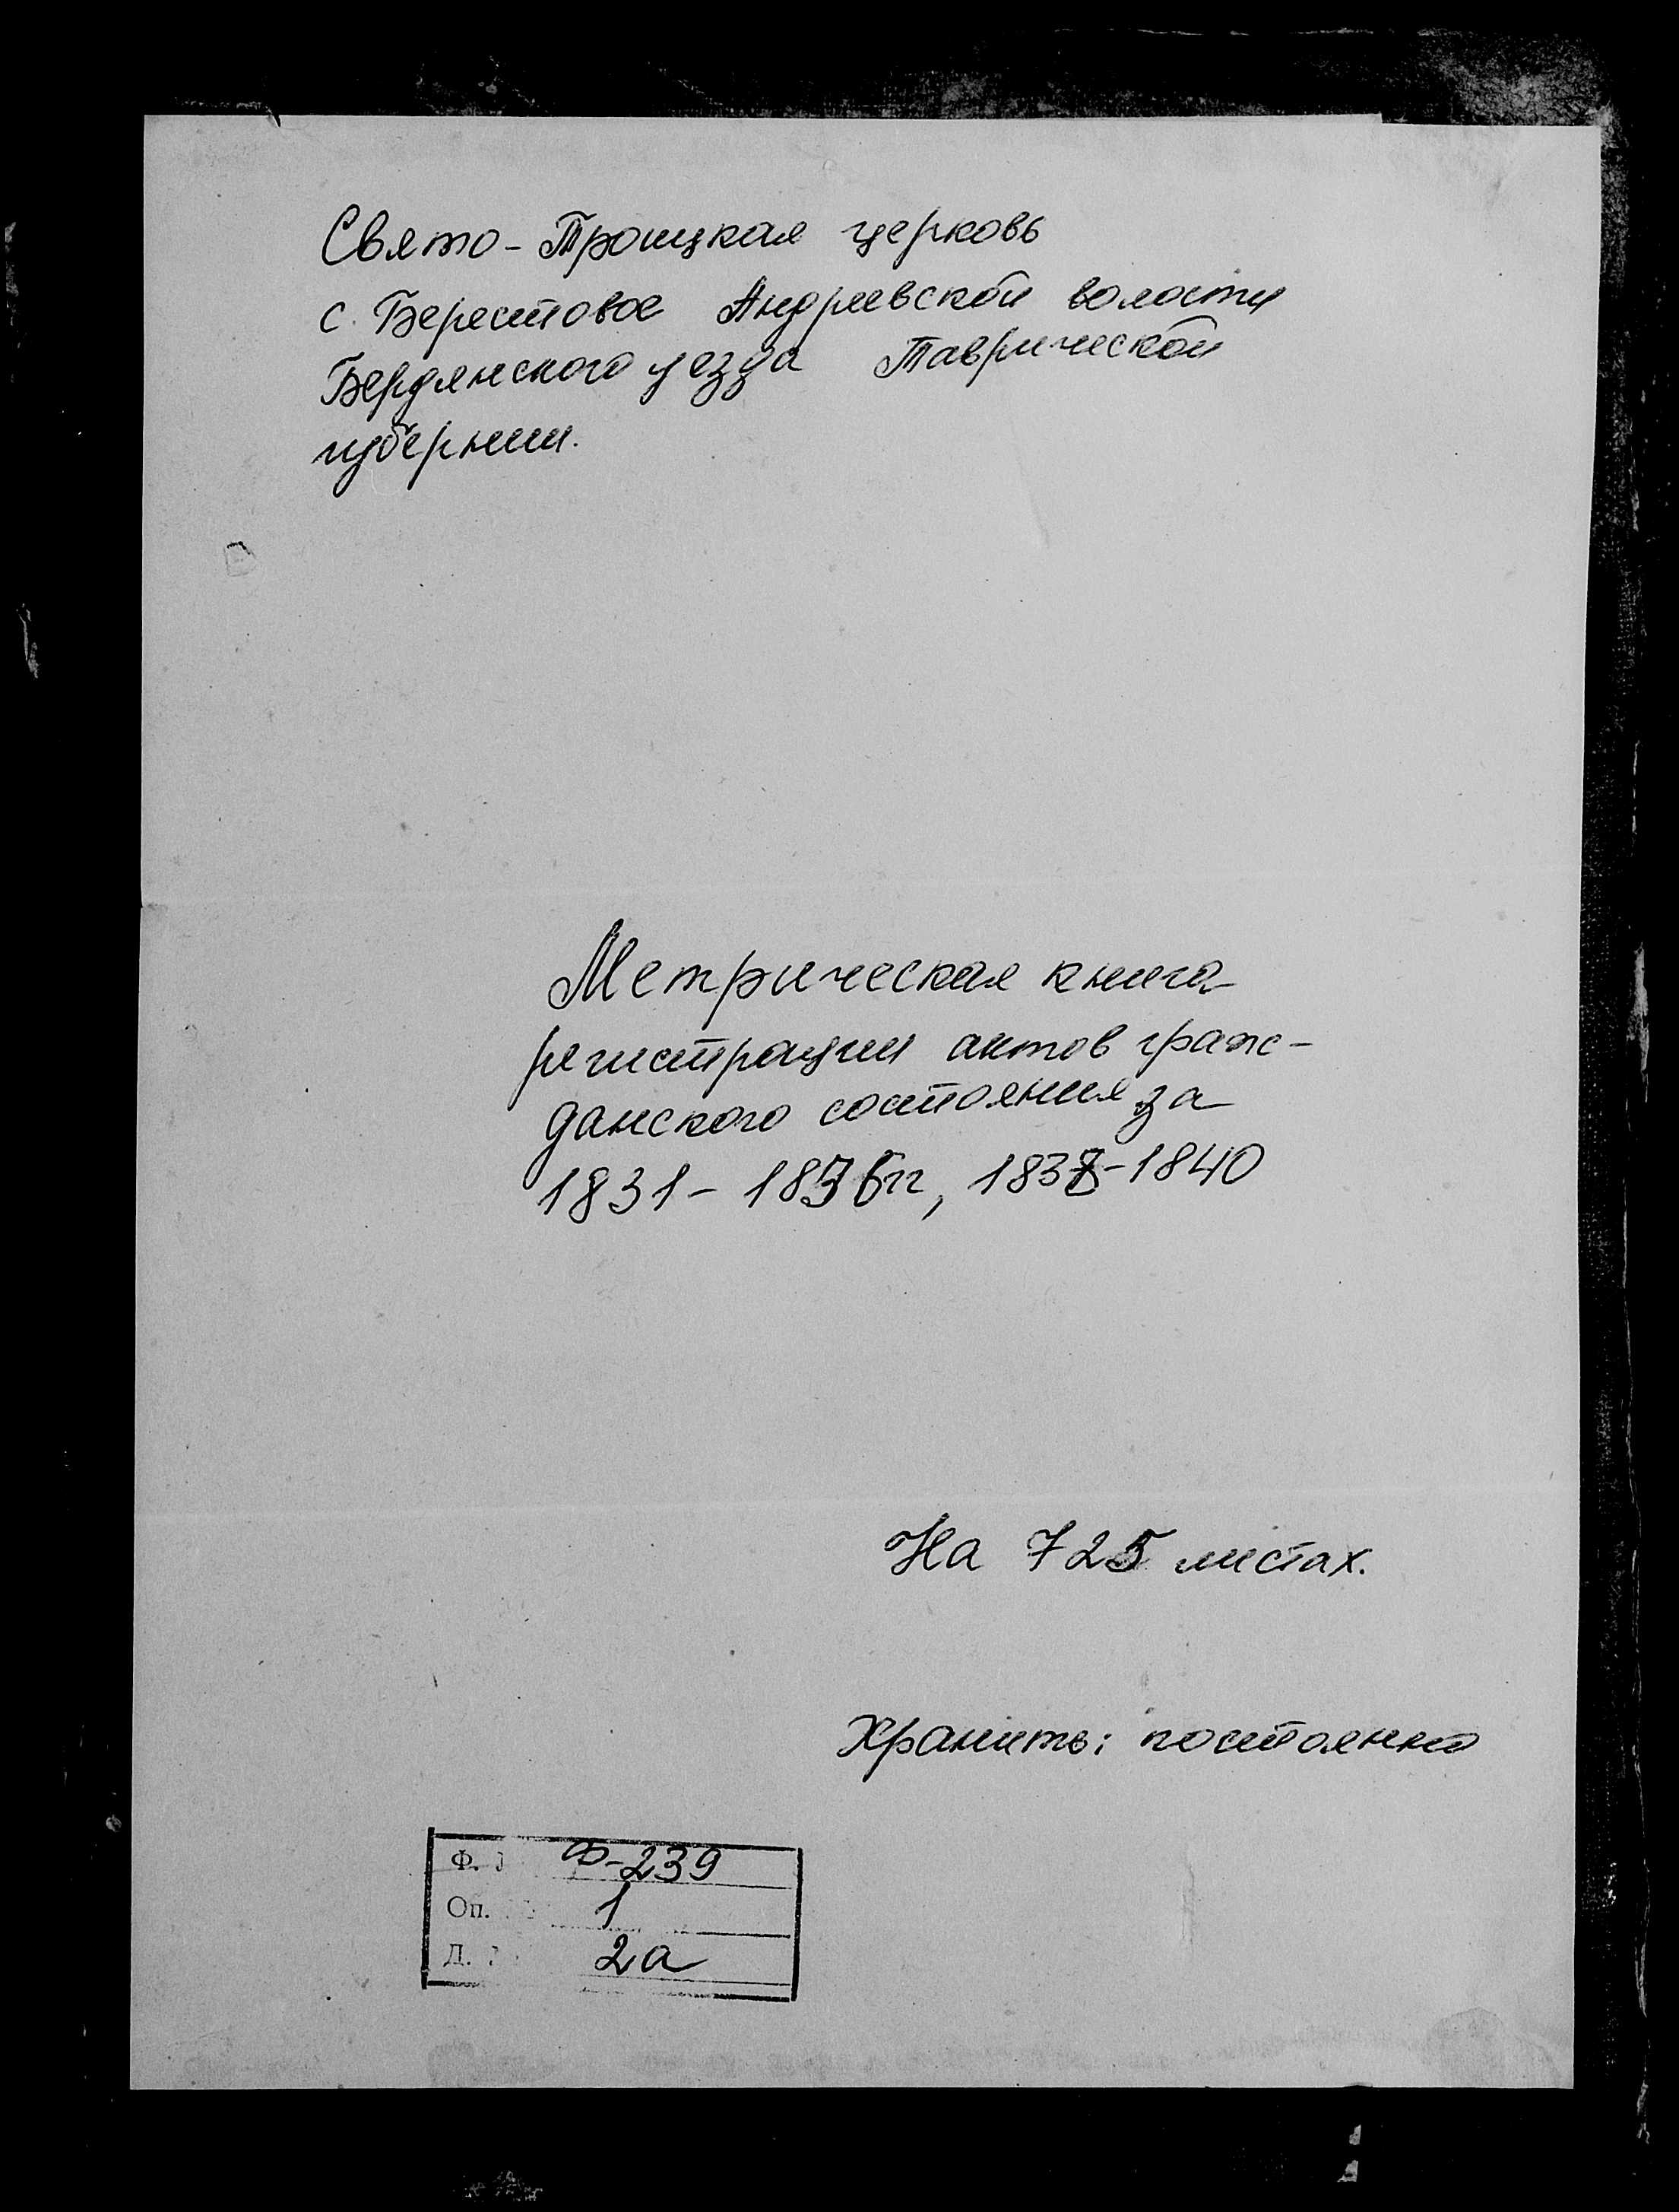 Свято-Троицкая церковь
с. Берестовое Андреевской волости
Бердянского уезда Таврической
губернии.
Метрическая книга
регистрации актов граж-
данского состояния за
1831- 1836гг, 1838-1840
На 725 листах.
Хранить: постоянно
Ф. Ф-239
Оп. 1
Д. 2а